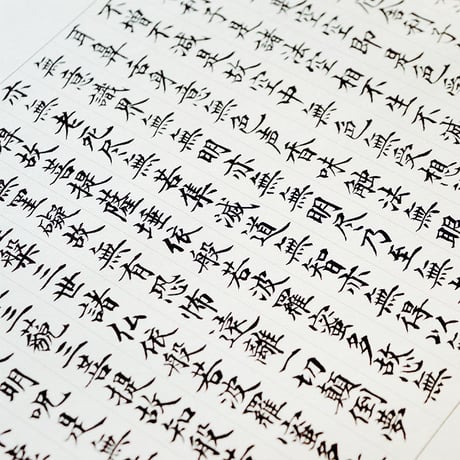 舎利子
是空空即是色
利子是諸法空相不生不滅
不増不減是故空中無色無受想
耳鼻舌身意無色声香味触法無眼
無意識界無無明亦無無明尽乃至無
亦無老死尽無苦集滅道無智亦無得以
得故菩提薩埵依般若波羅蜜多故心無
罣礙故無有恐怖遠離一切顛倒夢
槃三世諸仏依般若波羅蜜多
三藐三菩提故知般若
明呪是無